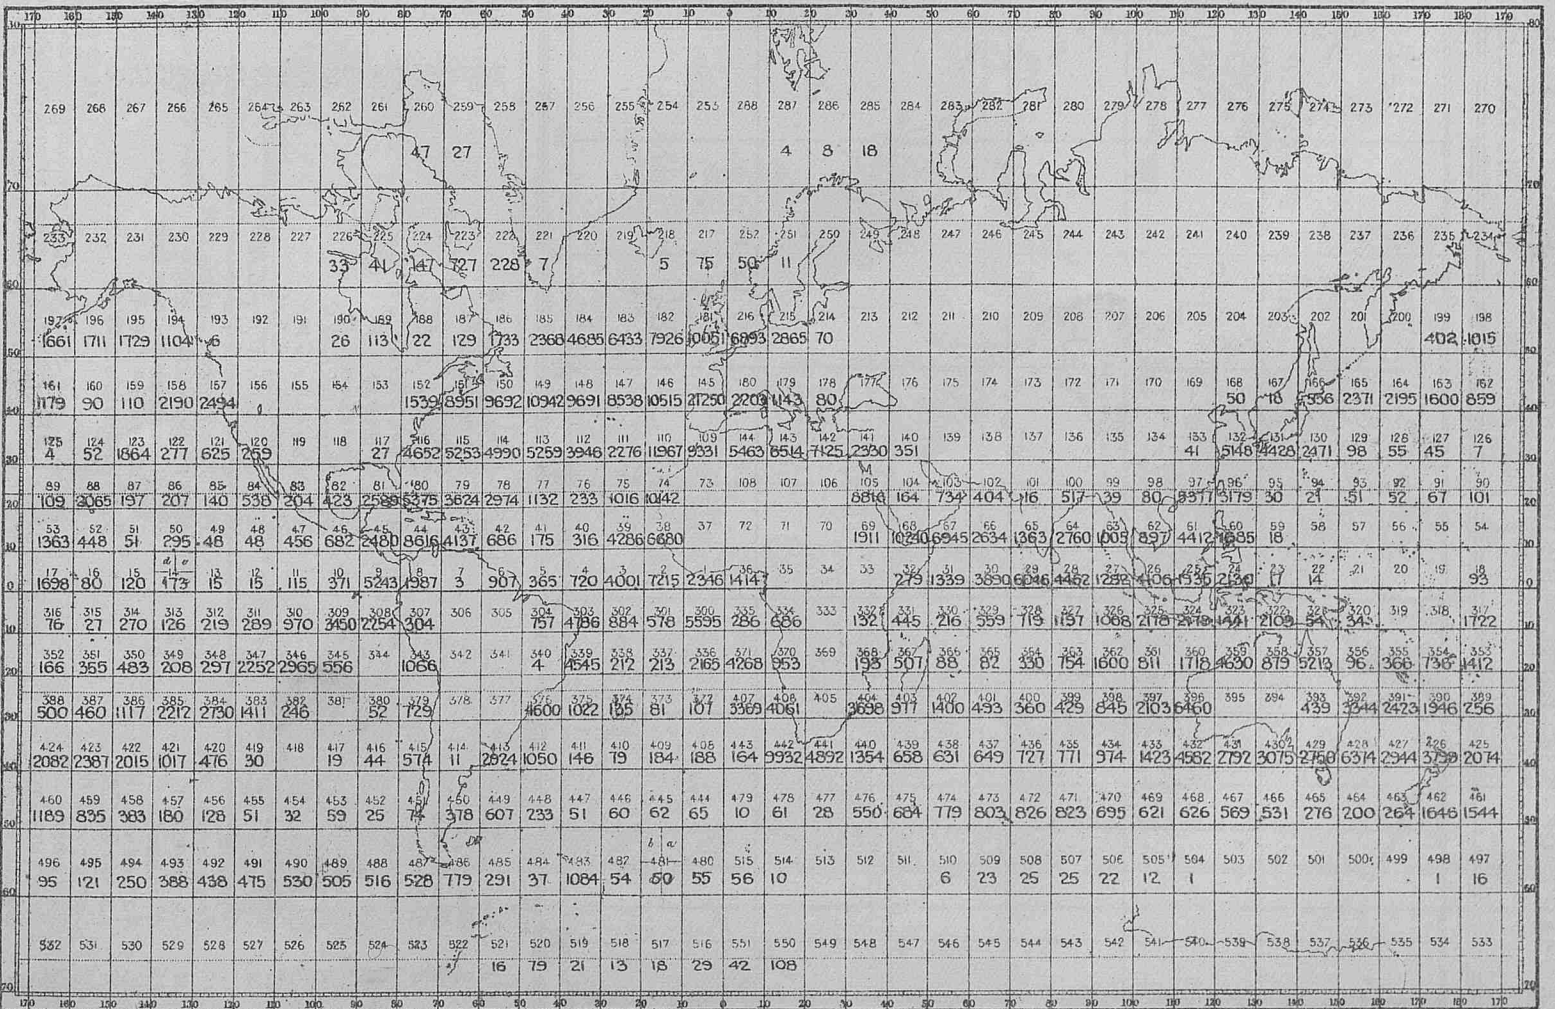 170 160 150 140 130 120 110 100 90 80 70 60 50 40 30 20 10 0 10 20 30 40 50 60 70 80 90 100 110 120 130 140 150 160 170 180 170
80 80
269 268 267 266 265 264 263 262 261 260 259 258 257 256 255 254 253 288 287 286 285 284 283 282 281 280 279 278 277 276 275 274 273 272 271 270
47 27 4 8 18
70 70
233 232 231 230 229 228 227 226 225 224 223 222 221 220 219 218 217 252 251 250 249 248 247 246 245 244 243 242 241 240 239 238 237 236 235 234
33 41 147 727 228 7 5 75 50 11
60 60
197 196 195 194 193 192 191 190 189 188 187 186 185 184 183 182 181 216 215 214 213 212 211 210 209 208 207 206 205 204 203 202 201 200 199 198
1661 1711 1729 1104 6 26 113 22 129 1733 2368 4685 6433 7926 10051 6893 2865 70 402 1015
50 50
161 160 159 158 157 156 155 154 153 152 151 150 149 148 147 146 145 180 179 178 177 176 175 174 173 172 171 170 169 168 167 166 165 164 163 162
1179 90 110 2190 2494 1539 8951 9692 10942 9691 8538 10515 21250 2203 1143 80 50 18 556 2371 2195 1600 859
40 40
125 124 123 122 121 120 119 118 117 116 115 114 113 112 111 110 109 144 143 142 141 140 139 138 137 136 135 134 133 132 131 130 129 128 127 126
4 52 1864 277 625 259 27 4652 5253 4990 5259 3946 2276 11967 9331 5463 6514 7125 2330 351 41 5148 4428 2471 98 55 45 7
30 30
89 88 87 86 85 84 83 82 81 80 79 78 77 76 75 74 73 108 107 106 105 104 103 102 101 100 99 98 97 96 95 94 93 92 91 90
109 2065 197 207 140 538 204 423 2589 5375 3824 2974 1132 233 1016 10142 8816 164 734 404 116 517 39 80 9377 3179 30 21 51 52 67 101
20 20
53 52 51 50 49 48 47 46 45 44 43 42 41 40 39 38 37 72 71 70 69 68 67 66 65 64 63 62 61 60 59 58 57 56 55 54
1363 448 51 295 48 48 456 682 2480 8616 4137 686 175 316 4286 6680 1911 10240 6945 2634 1363 2760 1005 897 4412 1685 18
10 10
17 16 15 14 13 12 11 10 9 8 7 6 5 4 3 2 1 36 35 34 33 32 31 30 29 28 27 26 25 24 23 22 21 20 19 18
1698 80 120 173 15 15 115 371 5243 1987 3 907 365 720 4001 7215 2346 1414 279 1339 3890 6046 4462 1282 4106 1935 2130 17 14 93
0 0
316 315 314 313 312 311 310 309 308 307 306 305 304 303 302 301 300 335 334 333 332 331 330 329 328 327 326 325 324 323 322 321 320 319 318 317
76 27 270 126 219 289 970 3450 2254 304 757 4786 884 578 5595 286 686 132 445 216 559 719 1197 1068 2178 2179 1441 2109 54 34 1722
10 10
352 351 350 349 348 347 346 345 344 343 342 341 340 339 338 337 336 371 370 369 368 367 366 365 364 363 362 361 360 359 358 357 356 355 354 353
166 365 483 208 297 2252 2965 556 1066 4 4545 212 213 2165 4268 953 193 507 88 82 330 754 1600 811 1718 4630 879 5213 96 366 736 1412
20 20
388 387 386 385 384 383 382 381 380 379 378 377 376 375 374 373 372 407 406 405 404 403 402 401 400 399 398 397 396 395 394 393 392 391 390 389
500 460 1117 2212 2730 1411 246 52 1729 4600 1022 165 81 107 3969 4061 3698 917 1400 493 360 429 845 2103 6460 439 3644 2423 1946 256
30 30
424 423 422 421 420 419 418 417 416 415 414 413 412 411 410 409 408 443 442 441 440 439 438 437 436 435 434 433 432 431 430 429 428 427 426 425
2082 2387 2015 1017 476 30 19 44 574 11 2924 1050 146 79 184 188 164 9932 4892 1354 658 631 649 727 771 974 1423 4582 2792 3075 2750 6314 2944 3799 2074
40 40
460 459 458 457 456 455 454 453 452 451 450 449 448 447 446 445 444 479 478 477 476 475 474 473 472 471 470 469 468 467 466 465 464 463 462 461
1189 835 383 180 128 51 32 59 25 74 378 607 233 51 60 62 65 10 61 28 550 684 779 803 826 823 695 621 626 569 531 276 200 264 1646 1544
50 50
b a
496 495 494 493 492 491 490 489 488 487 486 485 484 483 482 481 480 515 514 513 512 511 510 509 508 507 506 505 504 503 502 501 500 499 498 497
95 121 250 388 438 475 530 505 516 528 779 291 37 1084 54 50 55 56 10 6 23 25 25 22 12 1 1 16
60 60
532 531 530 529 528 527 526 525 524 523 522 521 520 519 518 517 516 551 550 549 548 547 546 545 544 543 542 541 540 539 538 537 536 535 534 533
16 79 21 13 18 29 42 108
70 70
170 160 150 140 130 120 110 100 90 80 70 60 50 40 30 20 10 0 10 20 30 40 50 60 70 80 90 100 110 120 130 140 150 160 170 180 170